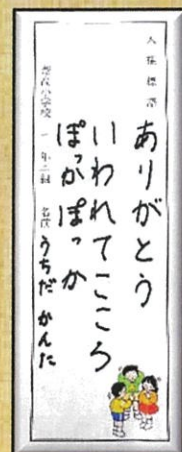 人権標語
ありがとう
いわれてこころ
ぽっかぽっか
小学校 一年二組 名前 うちだ かんた